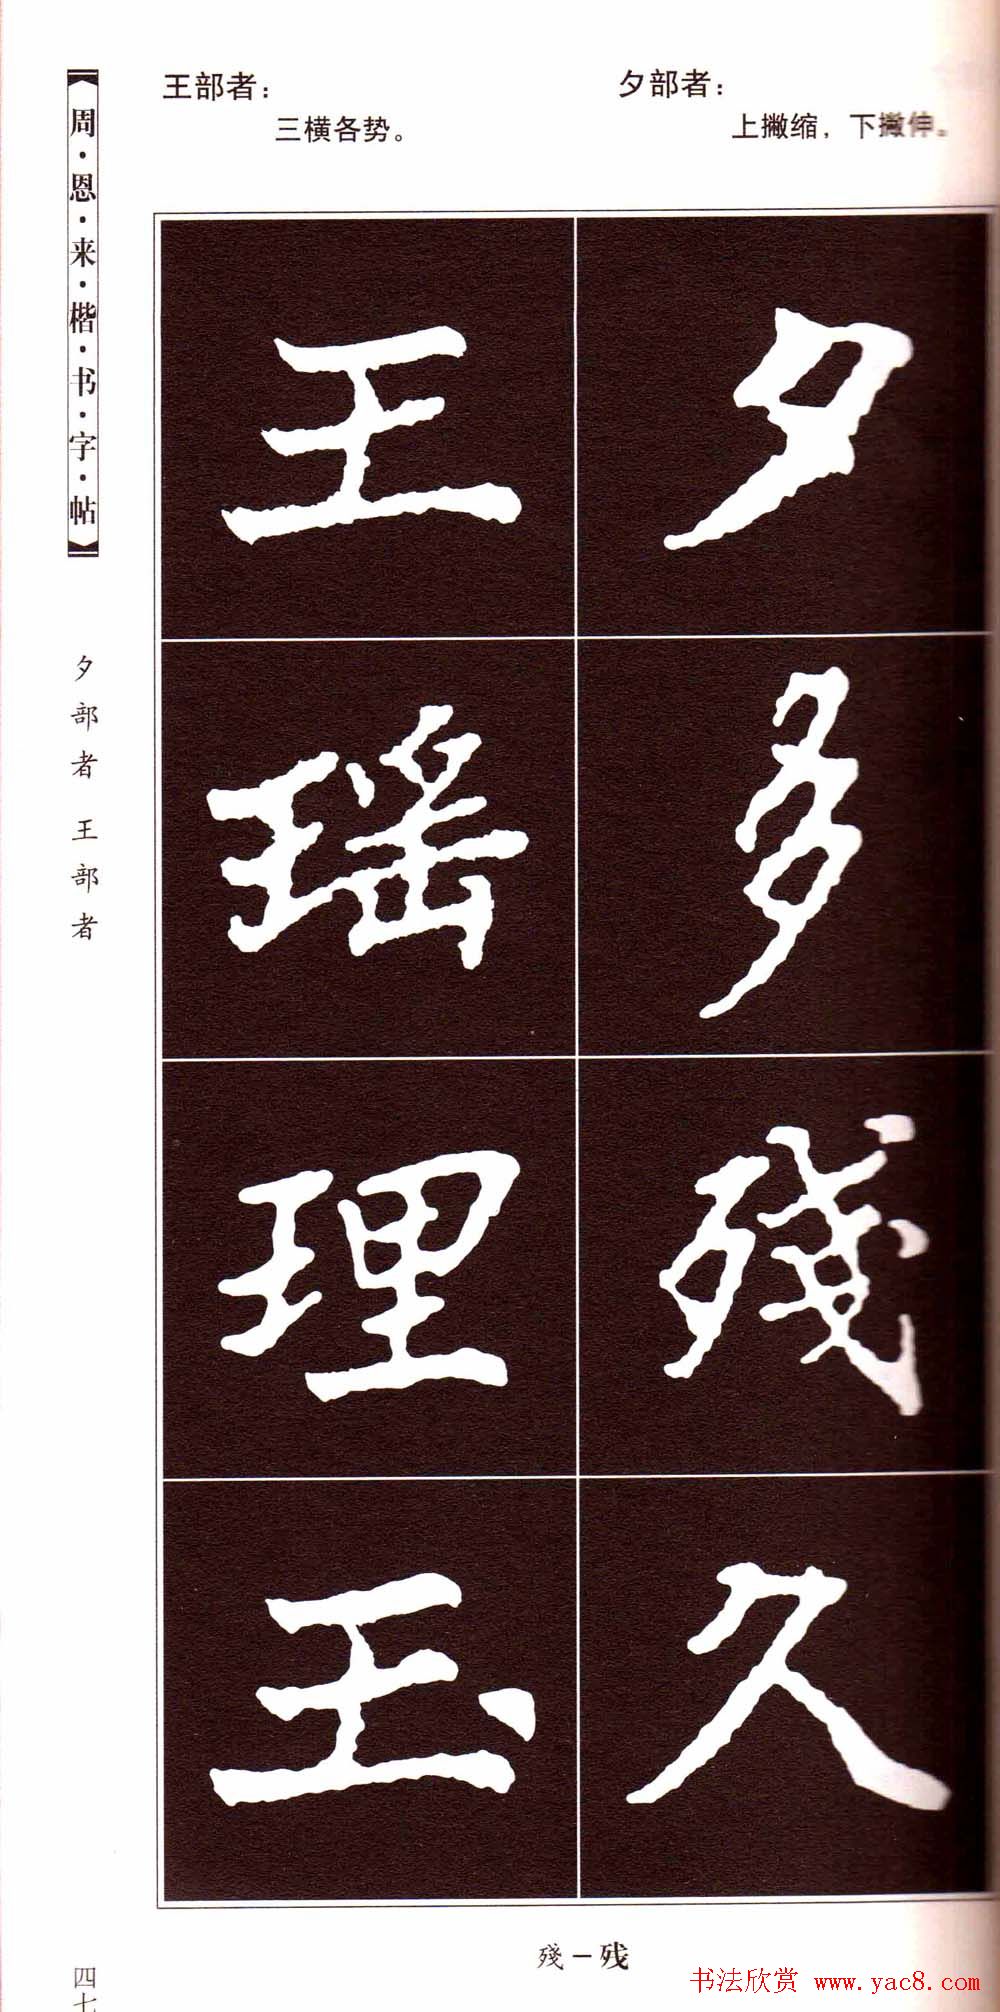 夕部者：
上撇缩，下撇伸。
王部者：
三横各势。
夕
多
殘
久
王
瑶
理
玉
周·恩·来·楷·书·字·帖
夕部者 王部者
四七
殘－残
书法欣赏 www.yac8.com